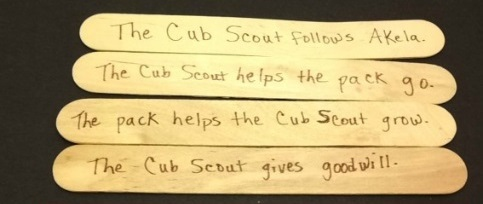 The Cub Scout follows Akela.
The Cub Scout helps the pack go.
The pack helps the Cub Scout grow.
The Cub Scout gives goodwill.